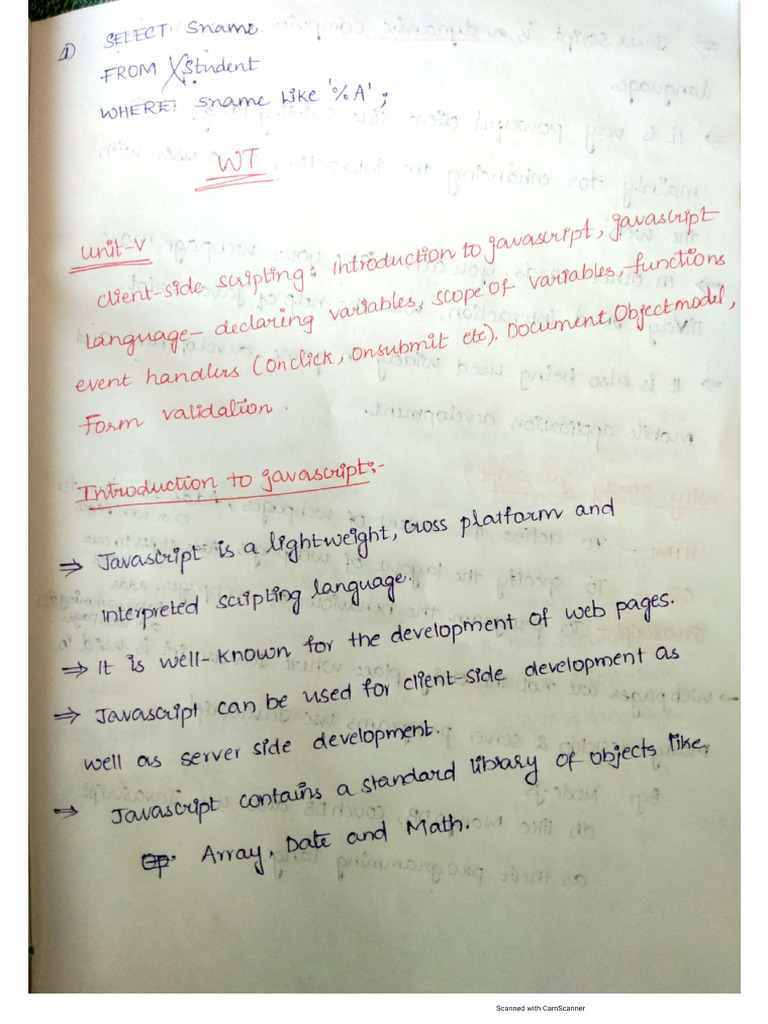 1) SELECT sname
FROM Student
WHERE sname Like '%A' ;
WT
Unit-V
client-side scripting: introduction to javascript, javascript
language- declaring variables, scope of variables, functions
event handlers (onclick, onsubmit etc). Document Object model,
Form validation.
Introduction to javascript:-
⇒ Javascript is a lightweight, cross platform and
interpreted scripting language.
⇒ It is well-known for the development of web pages.
⇒ Javascript can be used for client-side development as
well as server side development.
⇒ Javascript contains a standard library of objects like,
Array, Date and Math.
Scanned with CamScanner